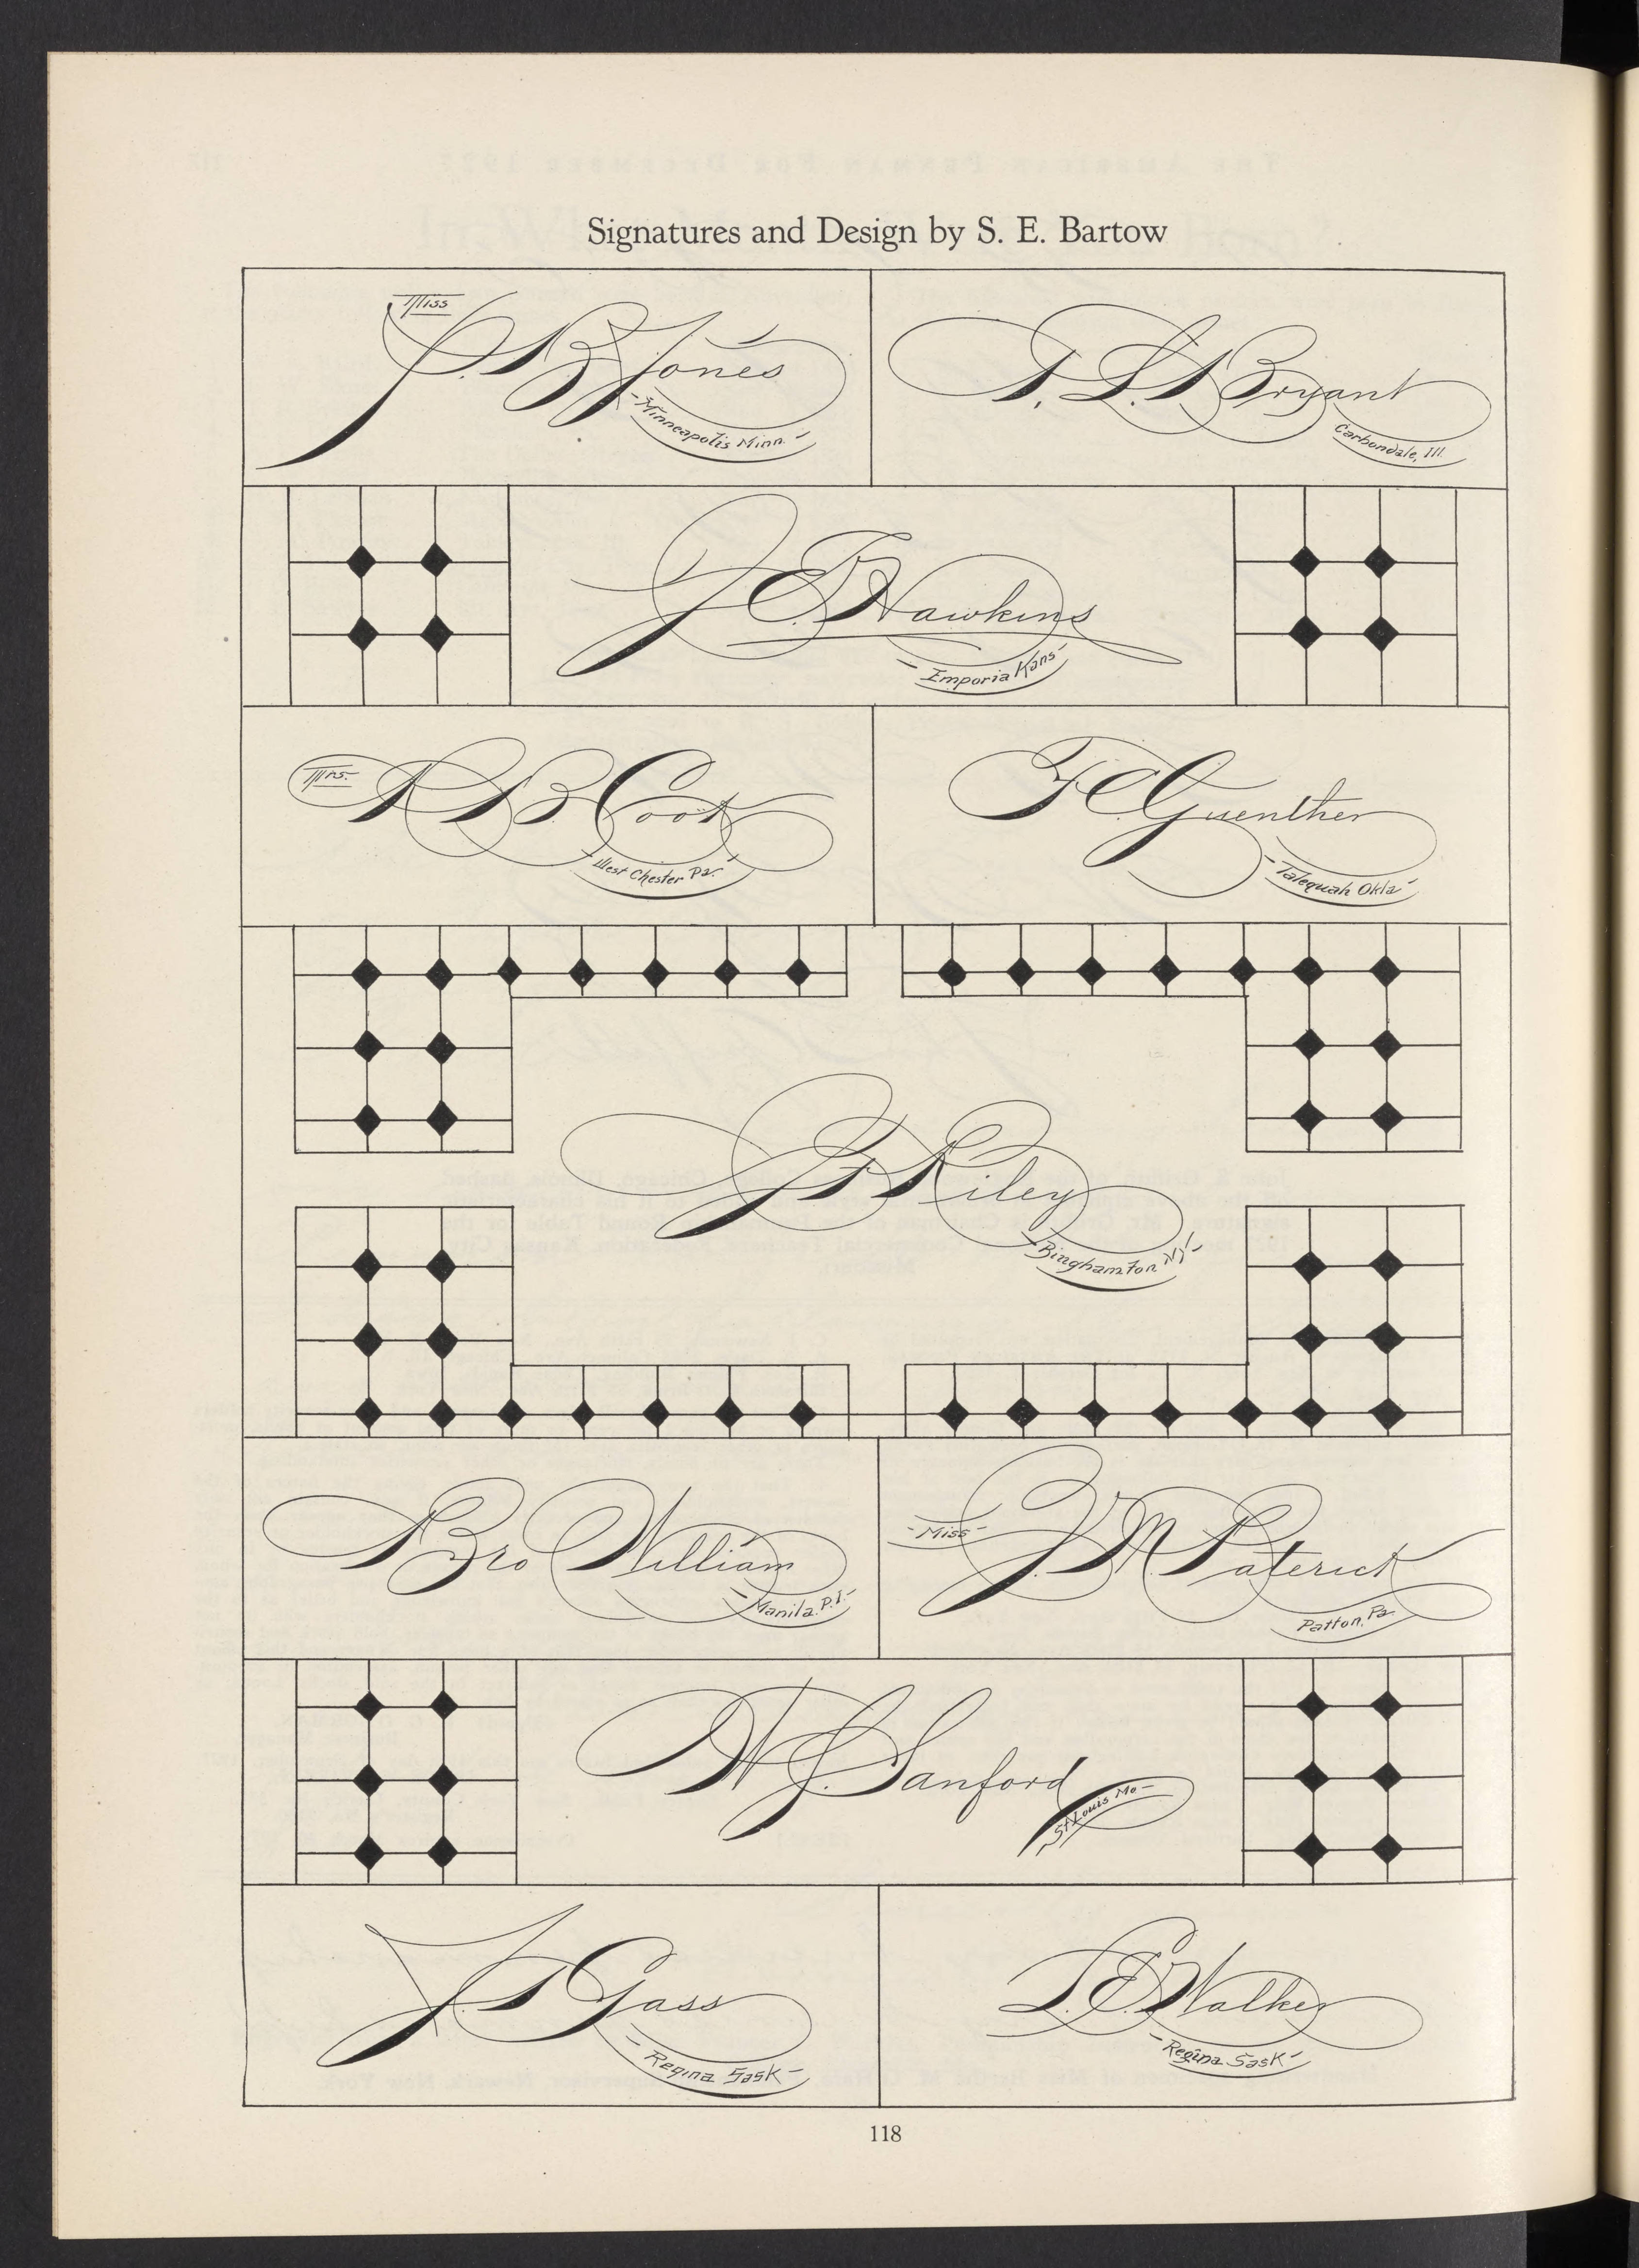 Signatures and Design by S. E. Bartow
Miss
J. B. Jones
Minneapolis Minn.
T. L. Bryant
Carbondale, Ill.
J. E. Hawkins
Emporia Kans
Mrs.
R B Cook
West Chester Pa.
F C Guenther
Talequah Okla
J F Riley
Binghamton N.Y.
Bro William
Manila P.I.
Miss
J. M. Paterick
Patton, Pa
W J. Sanford
St. Louis Mo
J. S Gass
Regina Sask
L. E. Walker
Regina Sask
118